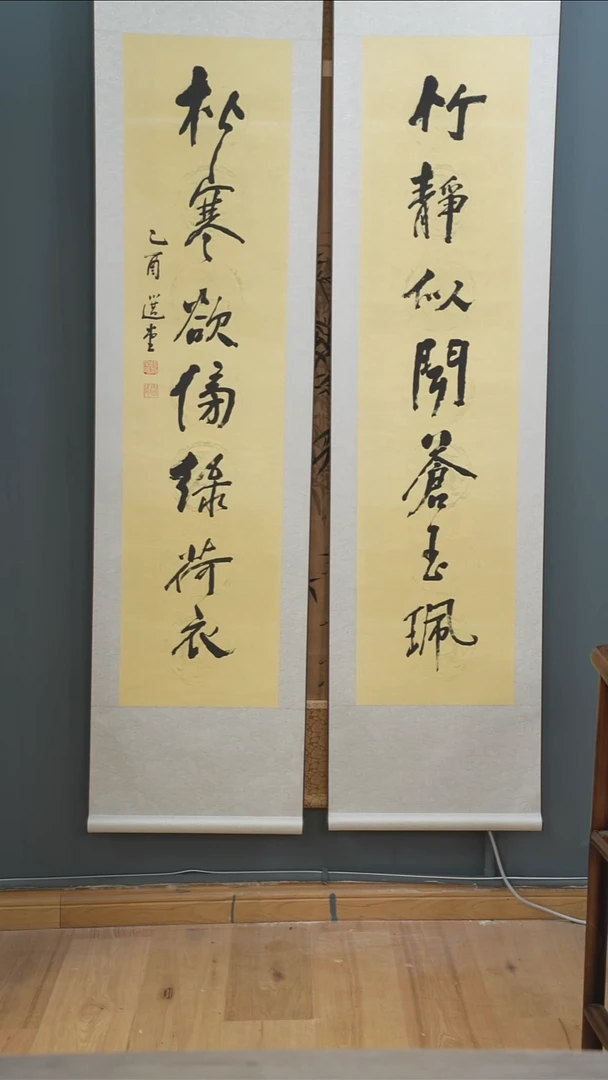 竹靜似聞蒼玉珮
松寒欲倚綠荷衣
乙酉 選堂